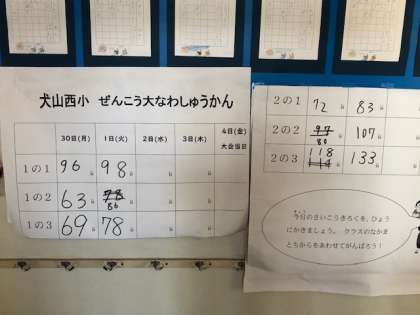 犬山西小 ぜんこう大なわしゅうかん
30日(月) 1日(火) 2日(水) 3日(木) 4日(金) 大会当日
1の1 96 98
1の2 63 78 86
1の3 69 78
2の1 72 83
2の2 97 80 107
2の3 118 114 133
今日のさいこうきろくを、ひょう
にかきましょう。 クラスのなかま
とちからをあわせてがんばろう!